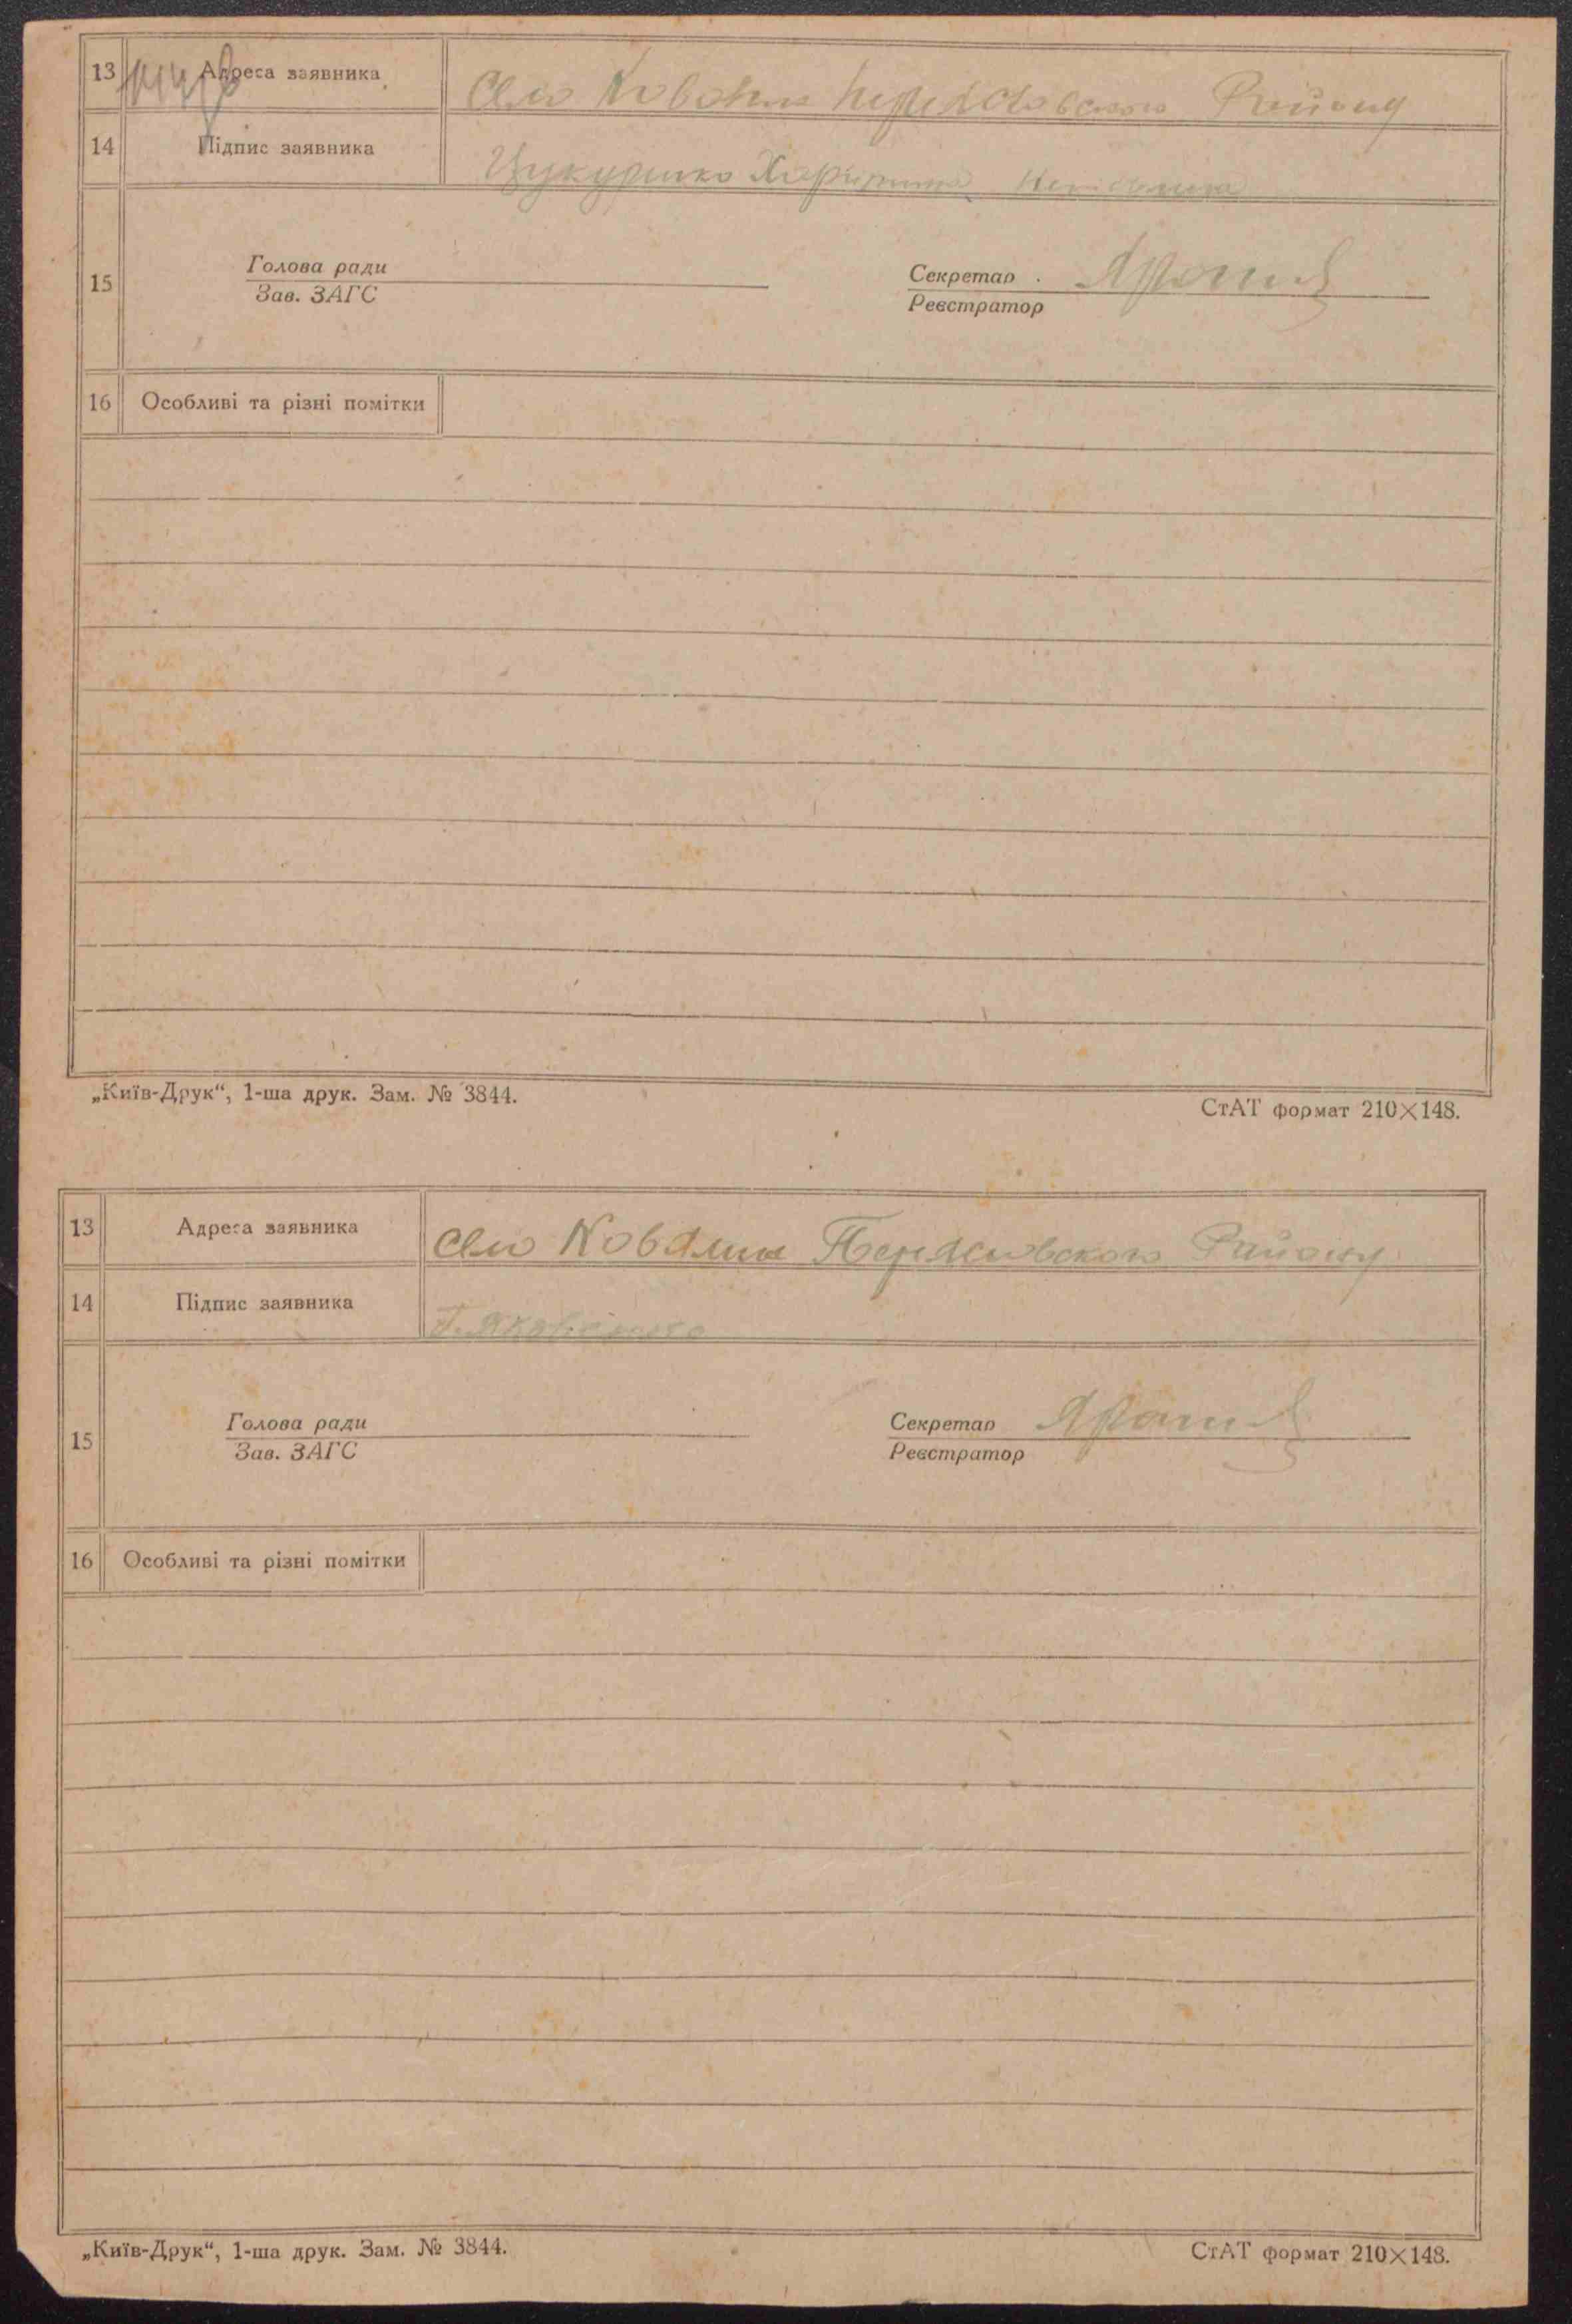 13 Адреса заявника Село Ковалин Переяславского Району
14 Підпис заявника Цукуренко неписьмена
15 Голова ради Секретар
Зав. ЗАГС Реєстратор
16 Особливі та різні помітки
„Київ-Друк“, 1-ша друк. Зам. № 3844. СтАТ формат 210×148.
13 Адреса заявника Село Ковалин Переяславского Району
14 Підпис заявника
15 Голова ради Секретар
Зав. ЗАГС Реєстратор
16 Особливі та різні помітки
„Київ-Друк“, 1-ша друк. Зам. № 3844. СтАТ формат 210×148.